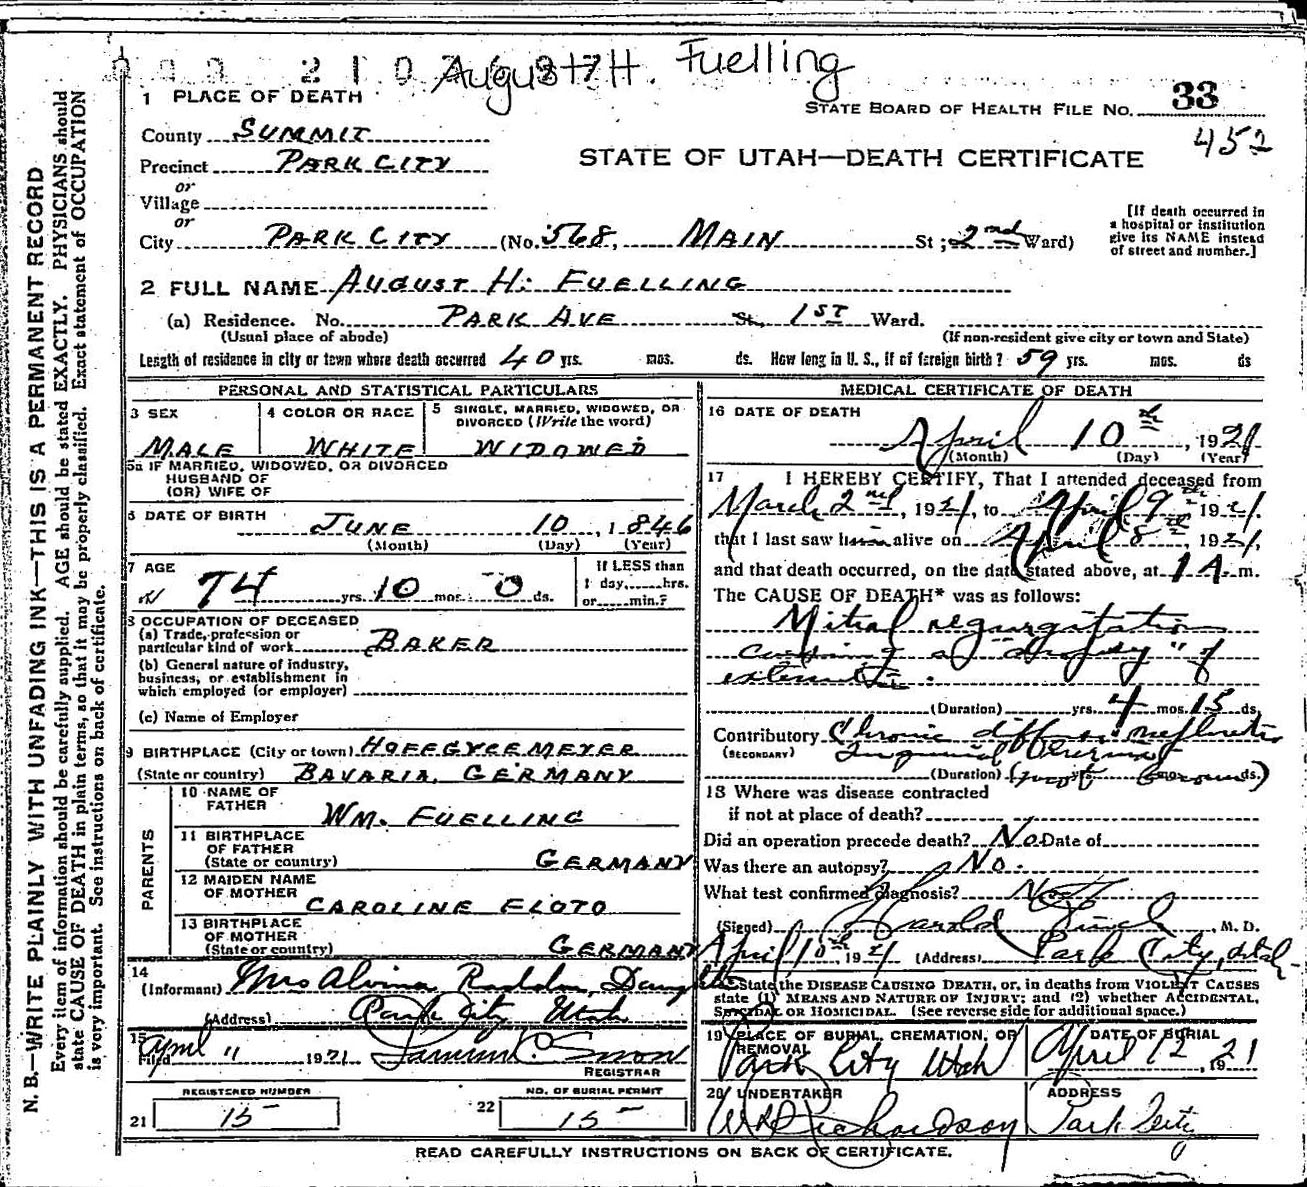 August H. Fuelling
1 PLACE OF DEATH
STATE BOARD OF HEALTH FILE NO. 33
452
County SUMMIT
Precinct PARK CITY
STATE OF UTAH—DEATH CERTIFICATE
or
Village
or
City PARK CITY (No. 568, MAIN St; 2nd Ward)
[If death occurred in a hospital or institution give its NAME instead of street and number.]
2 FULL NAME AUGUST H. FUELLING
(a) Residence. No. PARK AVE St, 1ST Ward.
(Usual place of abode) (If non-resident give city or town and State)
Length of residence in city or town where death occurred 40 yrs. mos. ds. How long in U. S., if of foreign birth? 59 yrs. mos. ds
PERSONAL AND STATISTICAL PARTICULARS
3 SEX
MALE
4 COLOR OR RACE
WHITE
5 SINGLE, MARRIED, WIDOWED, OR DIVORCED (Write the word)
WIDOWED
5a IF MARRIED, WIDOWED, OR DIVORCED
HUSBAND OF
(OR) WIFE OF
6 DATE OF BIRTH
JUNE 10, 1846
(Month) (Day) (Year)
7 AGE
74 yrs. 10 mos. 0 ds.
If LESS than
1 day, hrs.
or min.?
8 OCCUPATION OF DECEASED
(a) Trade, profession or
particular kind of work BAKER
(b) General nature of industry,
business, or establishment in
which employed (or employer)
(c) Name of Employer
9 BIRTHPLACE (City or town)
(State or country) BAVARIA, GERMANY
PARENTS
10 NAME OF
FATHER WM. FUELLING
11 BIRTHPLACE
OF FATHER
(State or country) GERMANY
12 MAIDEN NAME
OF MOTHER CAROLINE FLOTO
13 BIRTHPLACE
OF MOTHER
(State or country) GERMANY
14
(Informant) Mrs Alvina Raddon, Daughter
(Address) Park City Utah
15
Filed April 11 1921 Snow
REGISTRAR
REGISTERED NUMBER
21 15
NO. OF BURIAL PERMIT
22 15
MEDICAL CERTIFICATE OF DEATH
16 DATE OF DEATH
April 10th, 1921
(Month) (Day) (Year)
17 I HEREBY CERTIFY, That I attended deceased from
March 2nd, 1921, to April 9th 1921.
that I last saw him alive on April 8th, 1921,
and that death occurred, on the date stated above, at 1 A. m.
The CAUSE OF DEATH* was as follows:
Mitral regurgitation
causing a "dropsy" of
extremities.
(Duration) yrs. 4 mos. 15 ds.
Contributory Chronic diffuse nephritis
(SECONDARY) Inguinal
(Duration) yrs. mos. ds.
18 Where was disease contracted
if not at place of death?
Did an operation precede death? No. Date of
Was there an autopsy? No.
What test confirmed diagnosis?
(Signed) Harold , M. D.
April 10th, 1921 (Address) Park City, Utah
*State the DISEASE CAUSING DEATH, or, in deaths from VIOLENT CAUSES
state (1) MEANS AND NATURE OF INJURY; and (2) whether ACCIDENTAL,
SUICIDAL OR HOMICIDAL. (See reverse side for additional space.)
19 PLACE OF BURIAL, CREMATION, OR
REMOVAL
Park City Utah
DATE OF BURIAL
April 12, 1921
20 UNDERTAKER
Richardson
ADDRESS
Park City
READ CAREFULLY INSTRUCTIONS ON BACK OF CERTIFICATE.
N. B.—WRITE PLAINLY WITH UNFADING INK—THIS IS A PERMANENT RECORD
Every item of information should be carefully supplied. AGE should be stated EXACTLY. PHYSICIANS should
state CAUSE OF DEATH in plain terms, so that it may be properly classified. Exact statement of OCCUPATION
is very important. See instructions on back of certificate.